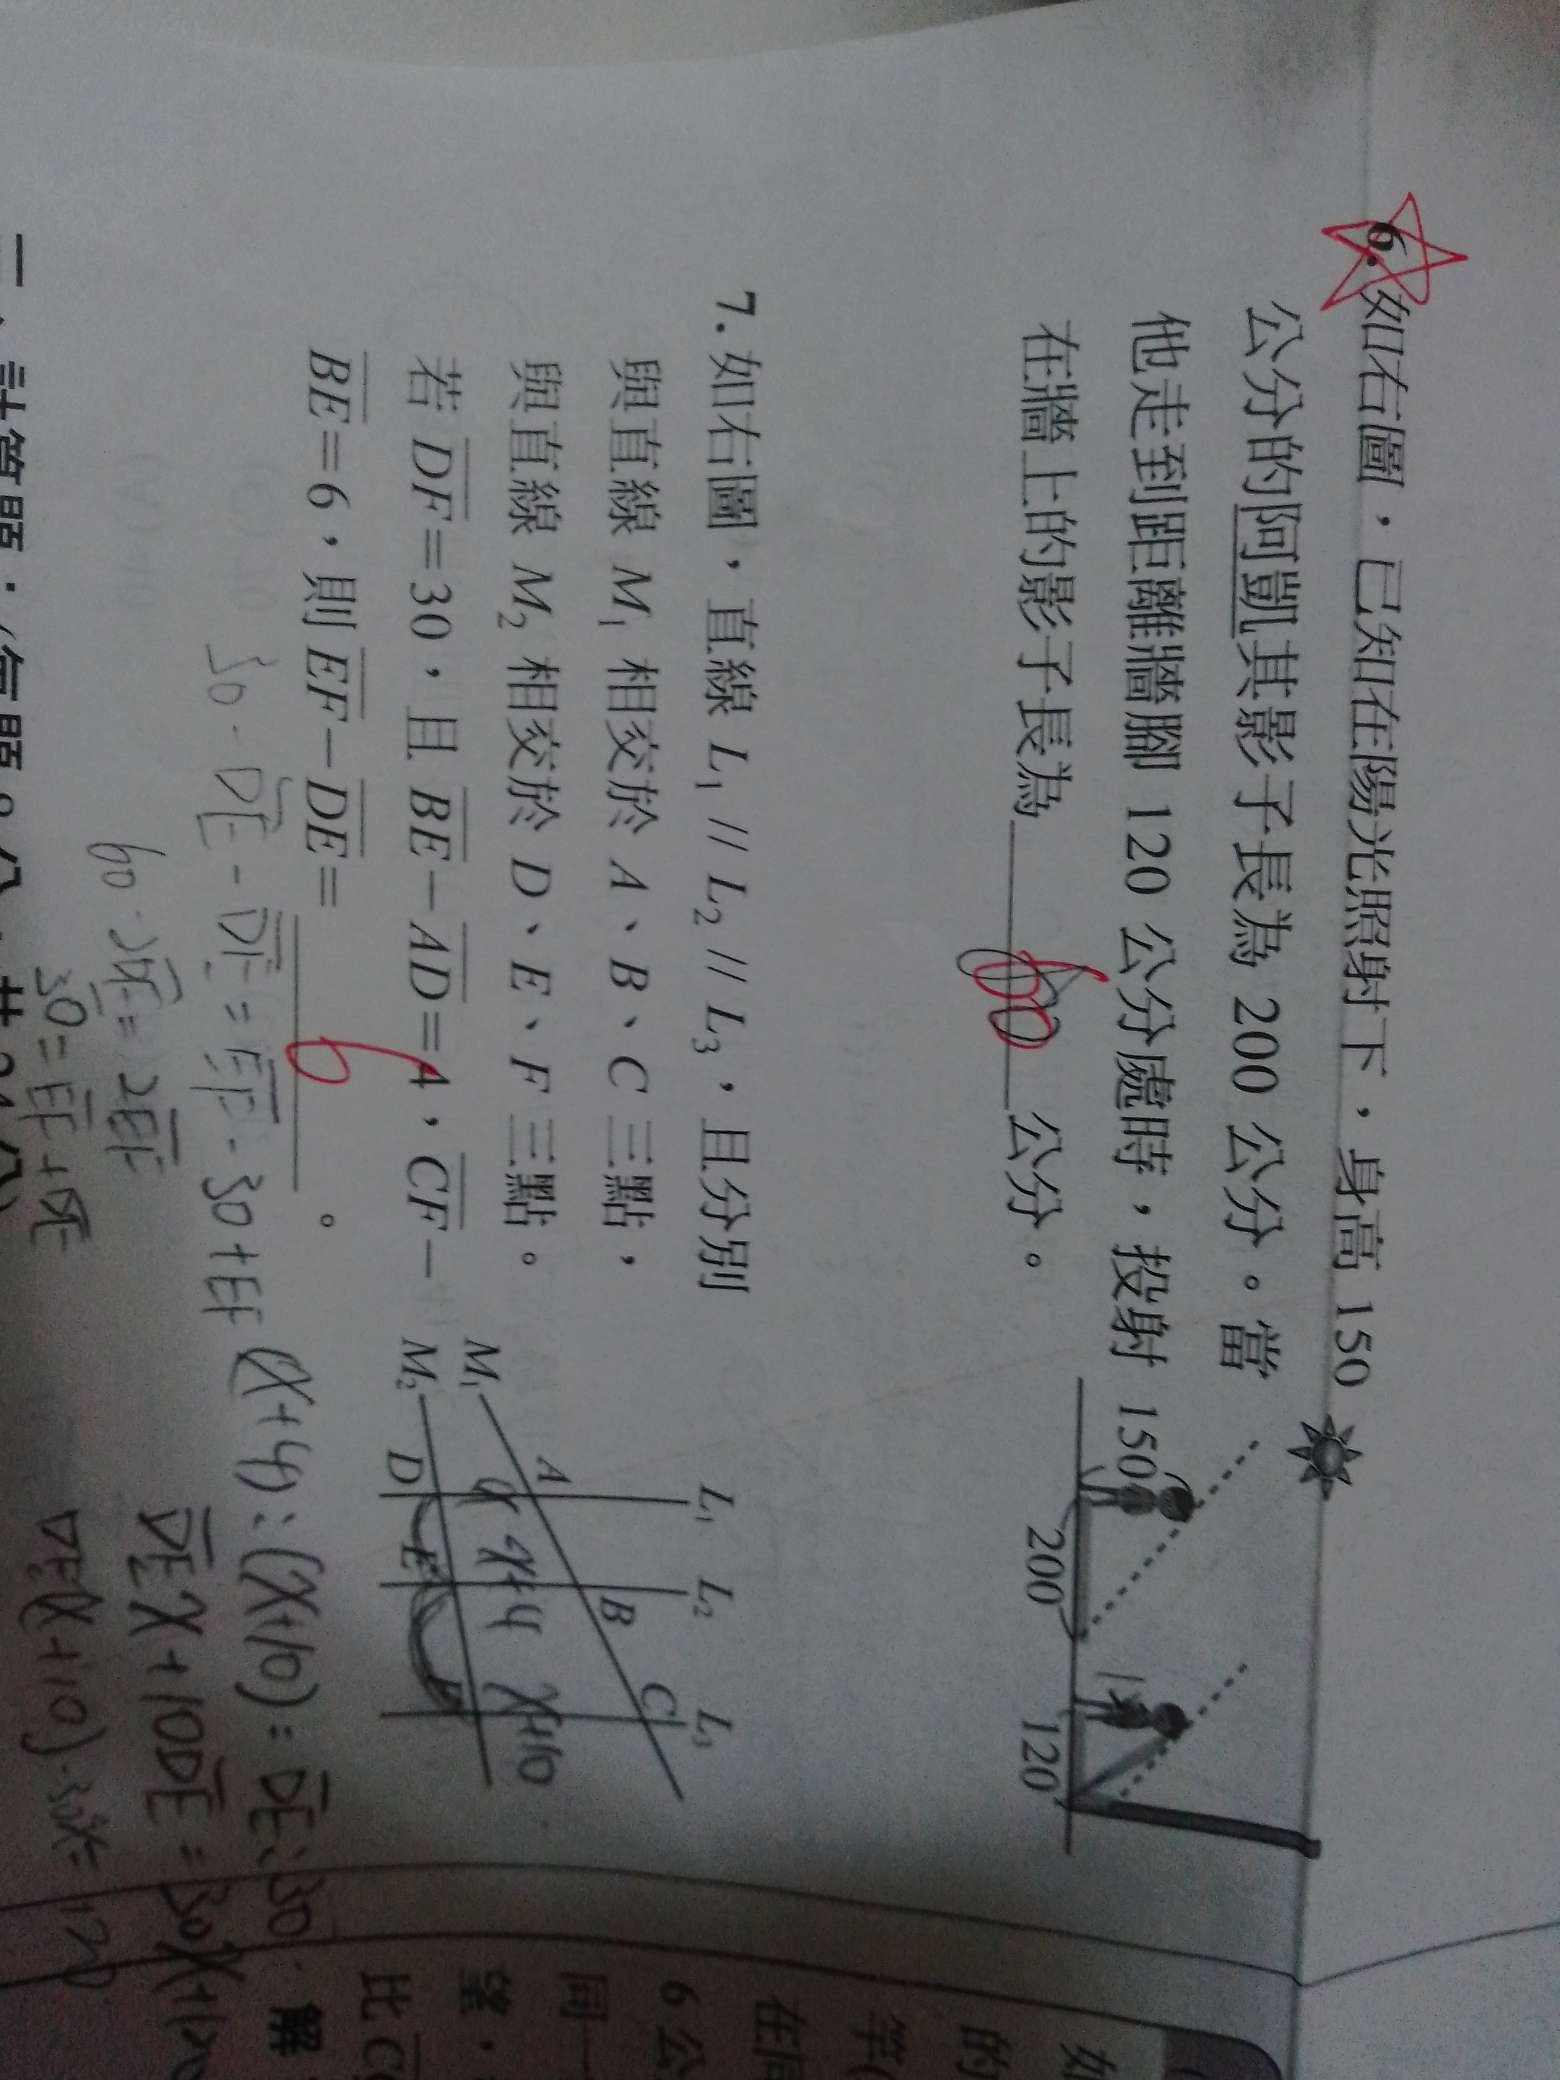 6. 如右圖，已知在陽光照射下，身高 150
公分的阿凱其影子長為 200 公分。當
他走到距離牆腳 120 公分處時，投射
在牆上的影子長為 60 公分。
150
200
120
7. 如右圖，直線 L₁ // L₂ // L₃，且分別
與直線 M₁ 相交於 A、B、C 三點，
與直線 M₂ 相交於 D、E、F 三點。
若 DF=30，且 BE−AD=4，CF−
BE=6，則 EF−DE= 6 。
L₁ L₂ L₃
M₁ A B C
M₂ D E F
x x+4 x+10
30-DE-DE=EF-30+EF
60-2DE=2EF
30=EF+DE
(x+4):(x+10)=DE:30
DEx+10DE=30x+120
DE(x+10)-30x=120
6 公
同一
望，
比 C
解
的
在